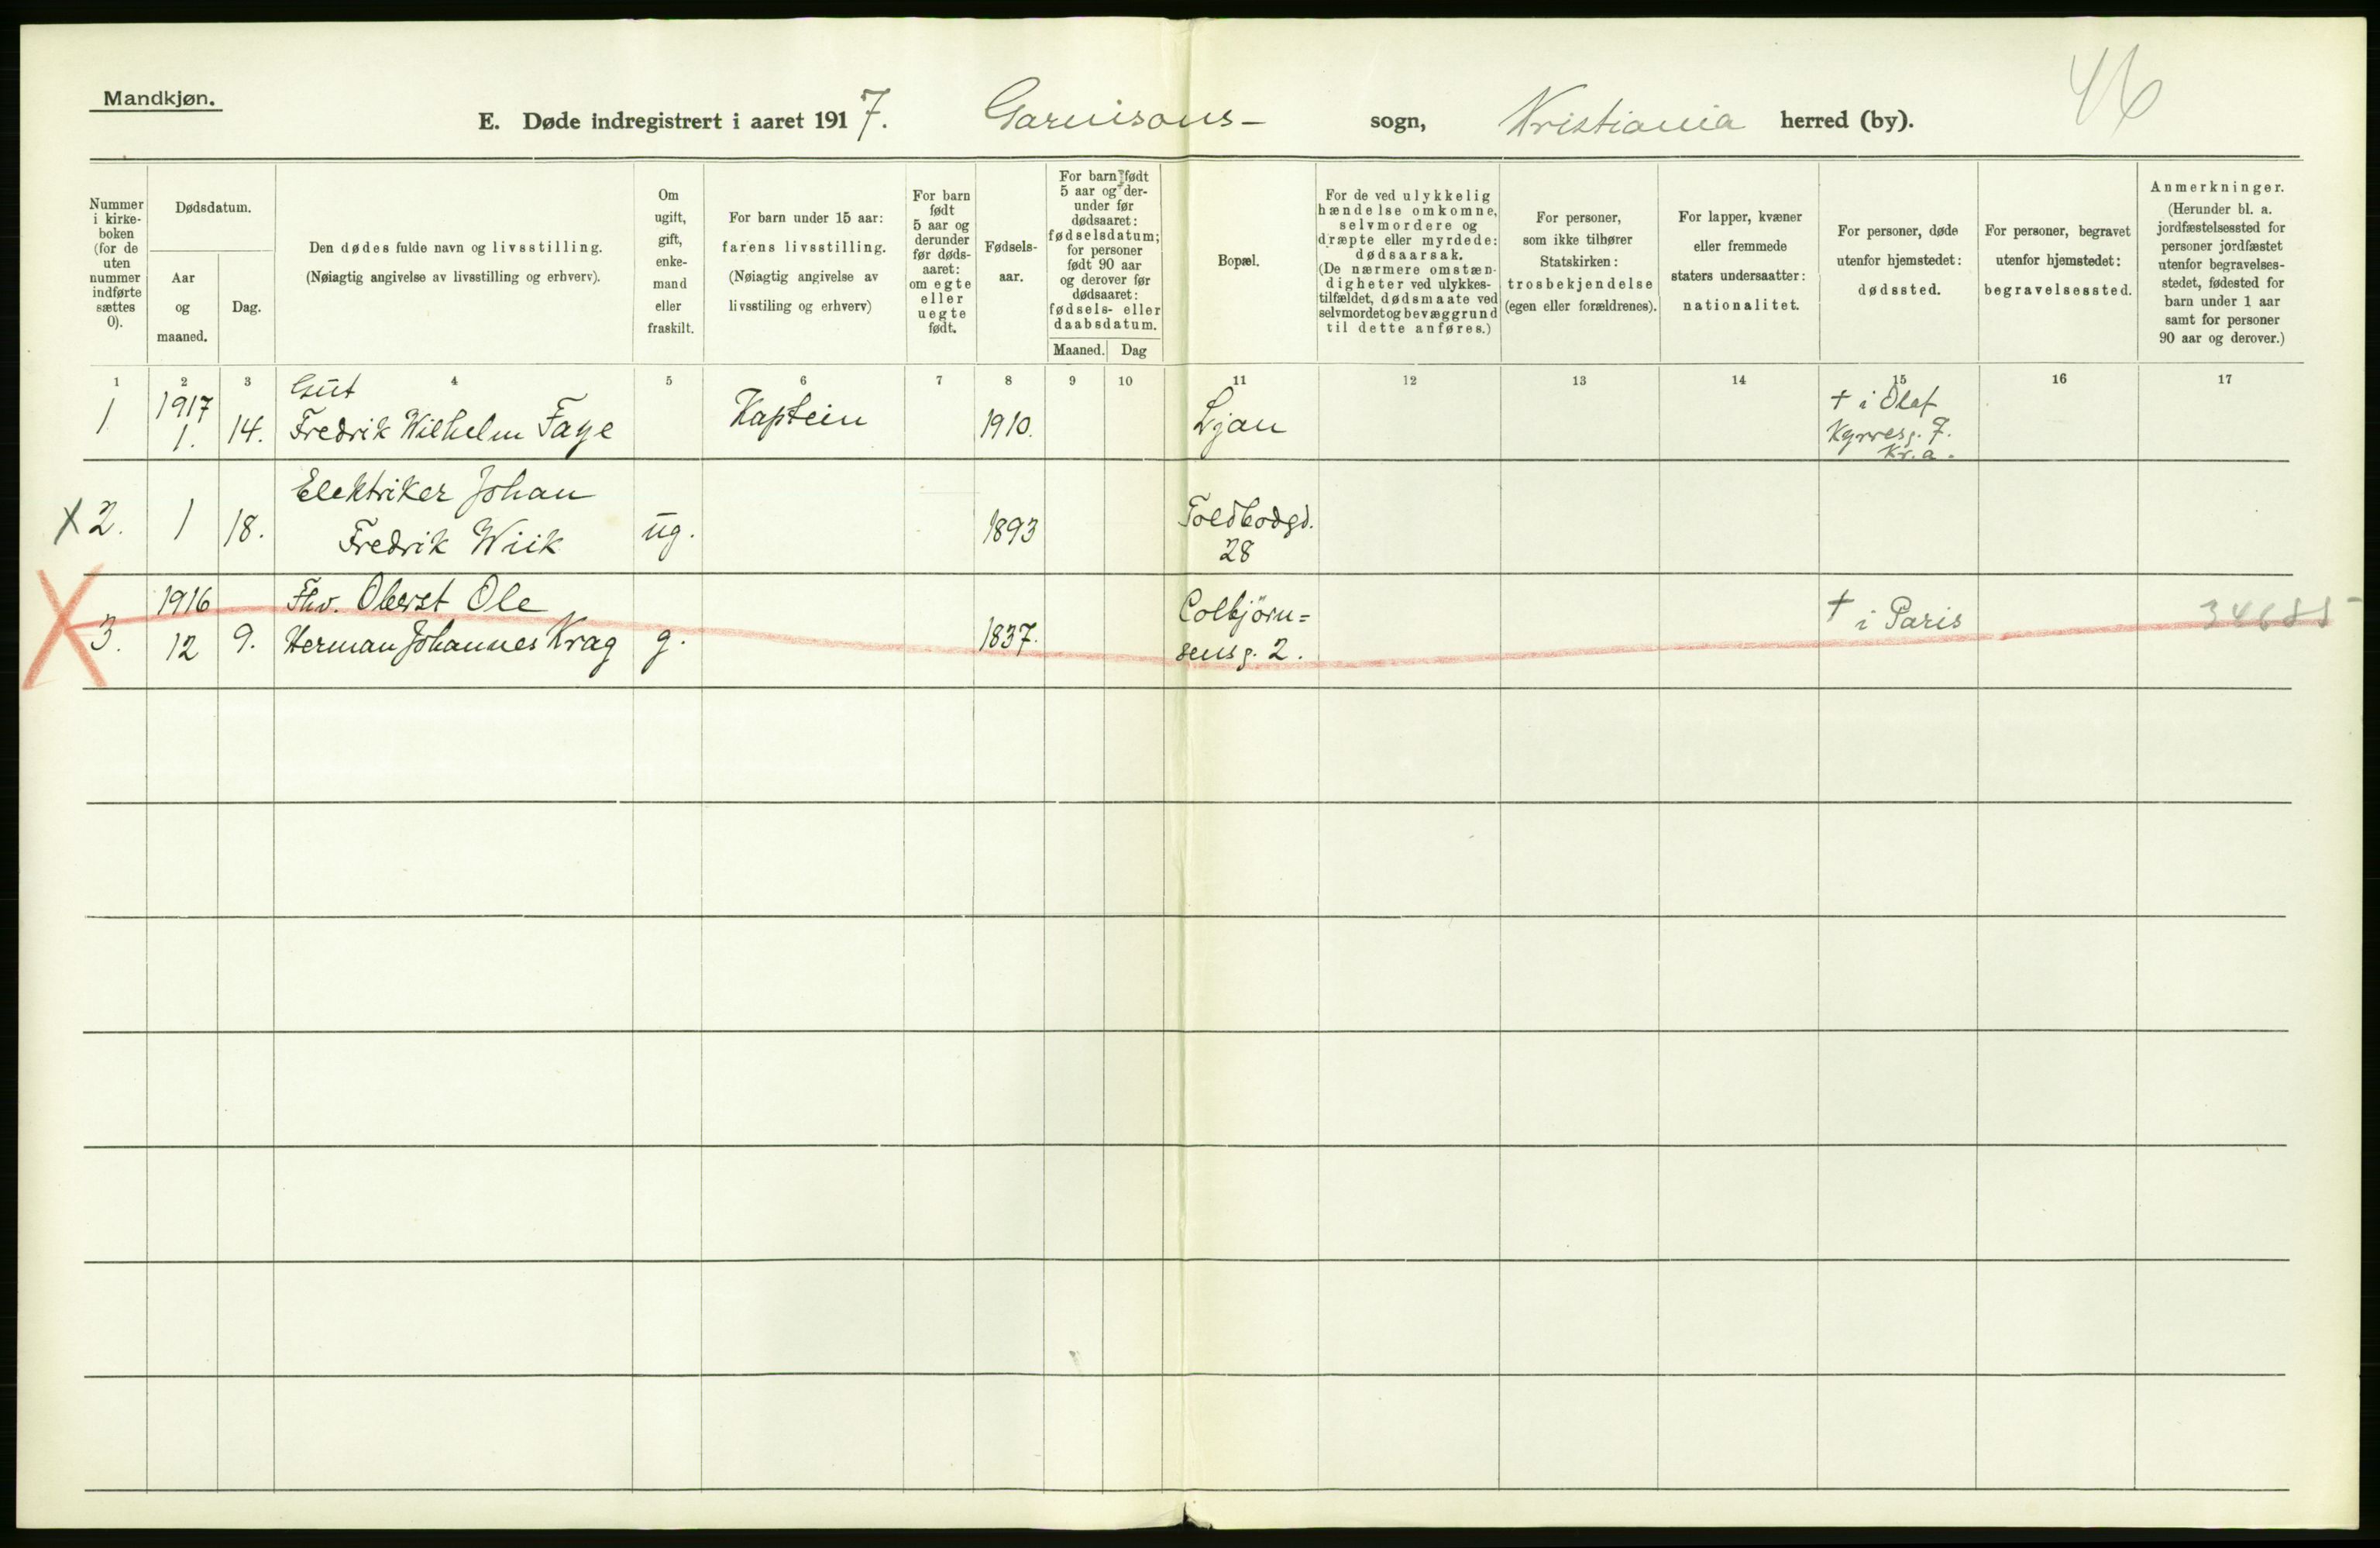 Mandkjøn.
46
E. Døde indregistrert i aaret 1917. Garnisons- sogn, Kristiania herred (by).
Nummer
i kirke-
boken
(for de
uten
nummer
indførte
sættes
0).
Dødsdatum.
Aar
og
maaned.
Dag.
Den dødes fulde navn og livsstilling.
(Nøiagtig angivelse av livsstilling og erhverv).
Om
ugift,
gift,
enke-
mand
eller
fraskilt.
For barn under 15 aar:
farens livsstilling.
(Nøiagtig angivelse av
livsstiling og erhverv)
For barn
født
5 aar og
derunder
før døds-
aaret:
om egte
eller
uegte
født.
Fødsels-
aar.
For barn født
5 aar og der-
under før
dødsaaret:
fødselsdatum;
for personer
født 90 aar
og derover før
dødsaaret:
fødsels- eller
daabsdatum.
Maaned. Dag
Bopæl.
For de ved ulykkelig
hændelse omkomne,
selvmordere og
dræpte eller myrdede:
dødsaarsak.
(De nærmere omstæn-
digheter ved ulykkes-
tilfældet, dødsmaate ved
selvmordet og bevæggrund
til dette anføres.)
For personer,
som ikke tilhører
Statskirken:
trosbekjendelse
(egen eller forældrenes).
For lapper, kvæner
eller fremmede
staters undersaatter:
nationalitet.
For personer, døde
utenfor hjemstedet:
dødssted.
For personer, begravet
utenfor hjemstedet:
begravelsessted.
Anmerkninger.
(Herunder bl. a.
jordfæstelsessted for
personer jordfæstet
utenfor begravelses-
stedet, fødested for
barn under 1 aar
samt for personer
90 aar og derover.)
1 2 3 4 5 6 7 8 9 10 11 12 13 14 15 16 17
1
1917
1.
14.
Gut
Fredrik Wilhelm Faye
Kaptein
1910.
Ljan
† i Olaf
Kyrresg. 7.
Kr.a.
X 2.
1
18.
Elektriker Johan
Fredrik Wiik
ug.
1893
Toldbodgd.
28
X
3.
1916
12
9.
Fhv. Oberst Ole
Herman Johannes Krag
g.
1837.
Colbjörn=
sensg. 2.
† i Paris